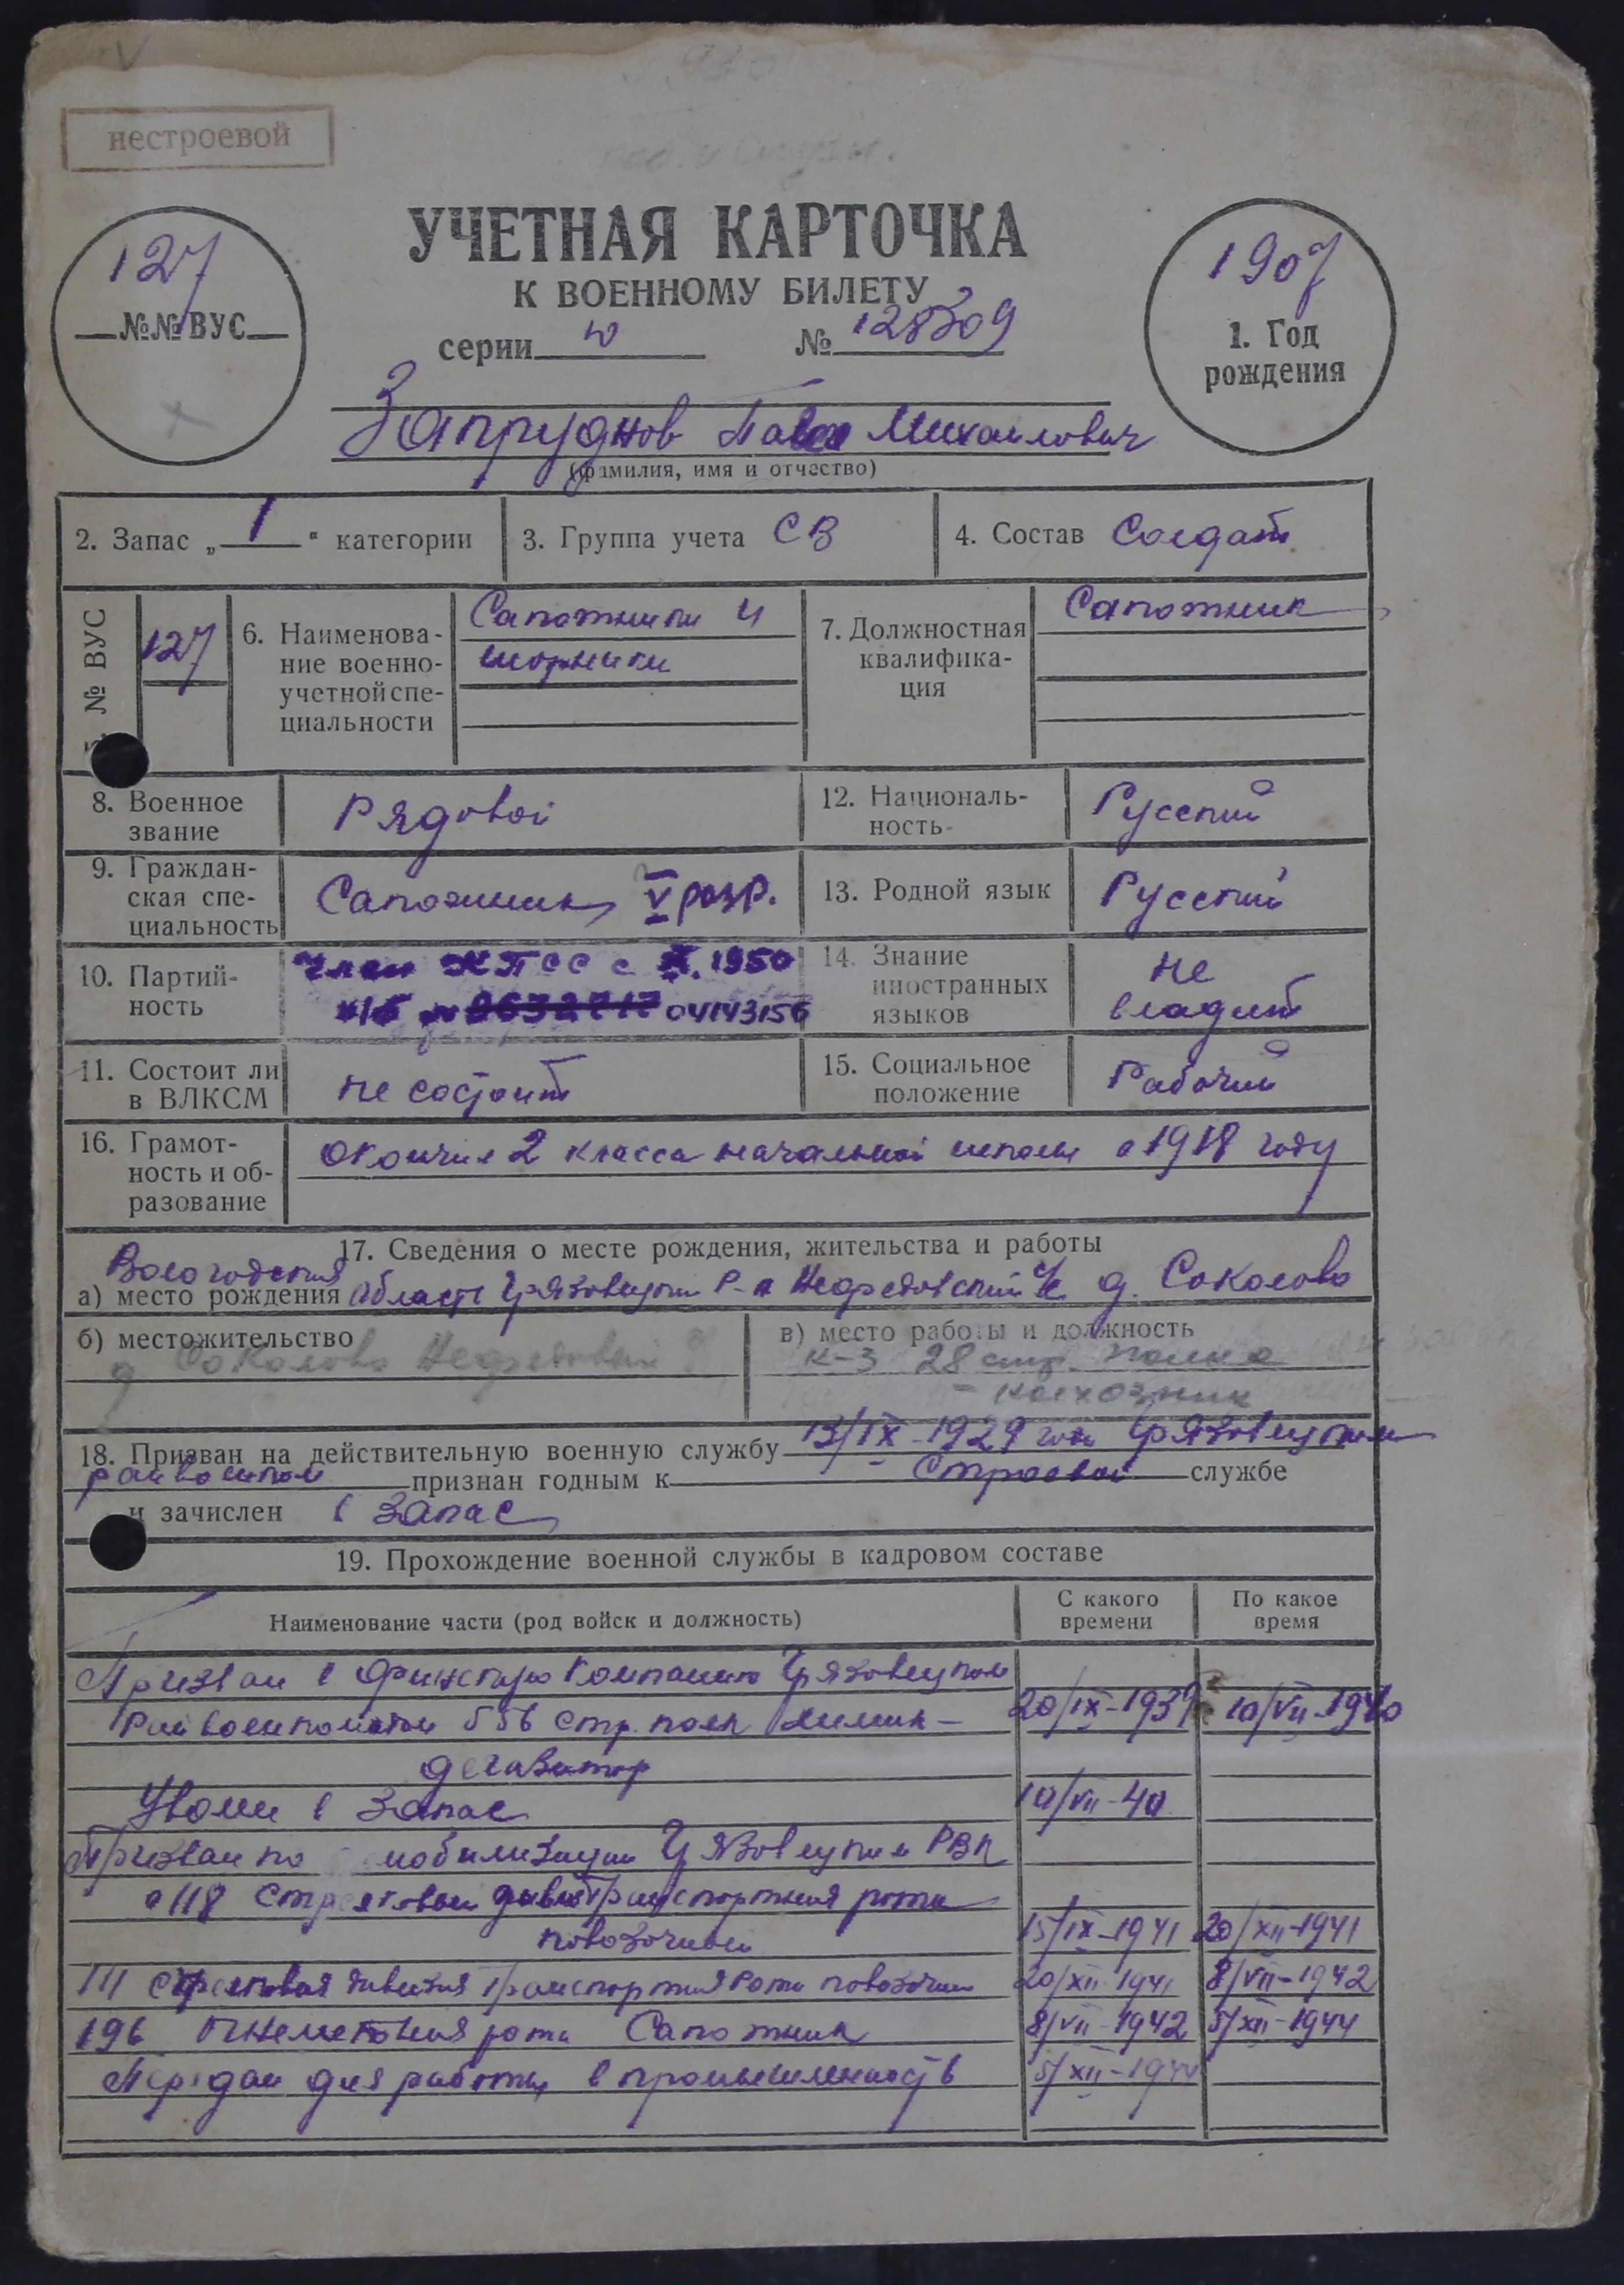 нестроевой
УЧЕТНАЯ КАРТОЧКА
К ВОЕННОМУ БИЛЕТУ
серии ю № 128309
127
№№ ВУС
1907
1. Год
рождения
Запруднов Павел Михаилович
(фамилия, имя и отчество)
2. Запас „ 1 “ категории
3. Группа учета СВ
4. Состав Солдат
№ ВУС
127
6. Наименова-
ние военно-
учетной спе-
циальности
Сапожники и
шорники
7. Должностная
квалифика-
ция
Сапожник
8. Военное
звание
Рядовой
12. Националь-
ность
Русский
9. Граждан-
ская спе-
циальность
Сапожник V разр.
13. Родной язык
Русский
10. Партий-
ность
Член КПСС с X. 1950
п/б № 8632717 04143156
14. Знание
иностранных
языков
не
владит
11. Состоит ли
в ВЛКСМ
не состоит
15. Социальное
положение
Рабочий
16. Грамот-
ность и об-
разование
окончил 2 класса начальной школы в 1918 году
17. Сведения о месте рождения, жительства и работы
Вологодская
а) место рождения область Грязовецкий Р-н Недредовский с/с д. Соколово
б) местожительство
д Соколово
в) место работы и должность
к-з 28 стр. полка
- колхозник
18. Призван на действительную военную службу 13/IX-1929 года Грязовецким
райвоенком признан годным к строевой службе
и зачислен в запас
19. Прохождение военной службы в кадровом составе
Наименование части (род войск и должность)
С какого
времени
По какое
время
Призван в финскую компанию Грязовецким
Райвоенкоматом 556 стр. полк химик- 20/IX-1939 10/VII-1940
дегазатор
Уволен в запас 10/VII-40
Призван по мобилизации Грязовецким РВК
в 118 стрелковая транспортная рота
повозочный 15/IX-1941 20/XII-1941
111 стрелковая дивизия транспортная рота повозочный 20/XII-1941 8/VII-1942
196 рота Сапожник 8/VII-1942 5/XII-1944
Передан для работы в промышленность 5/XII-1944